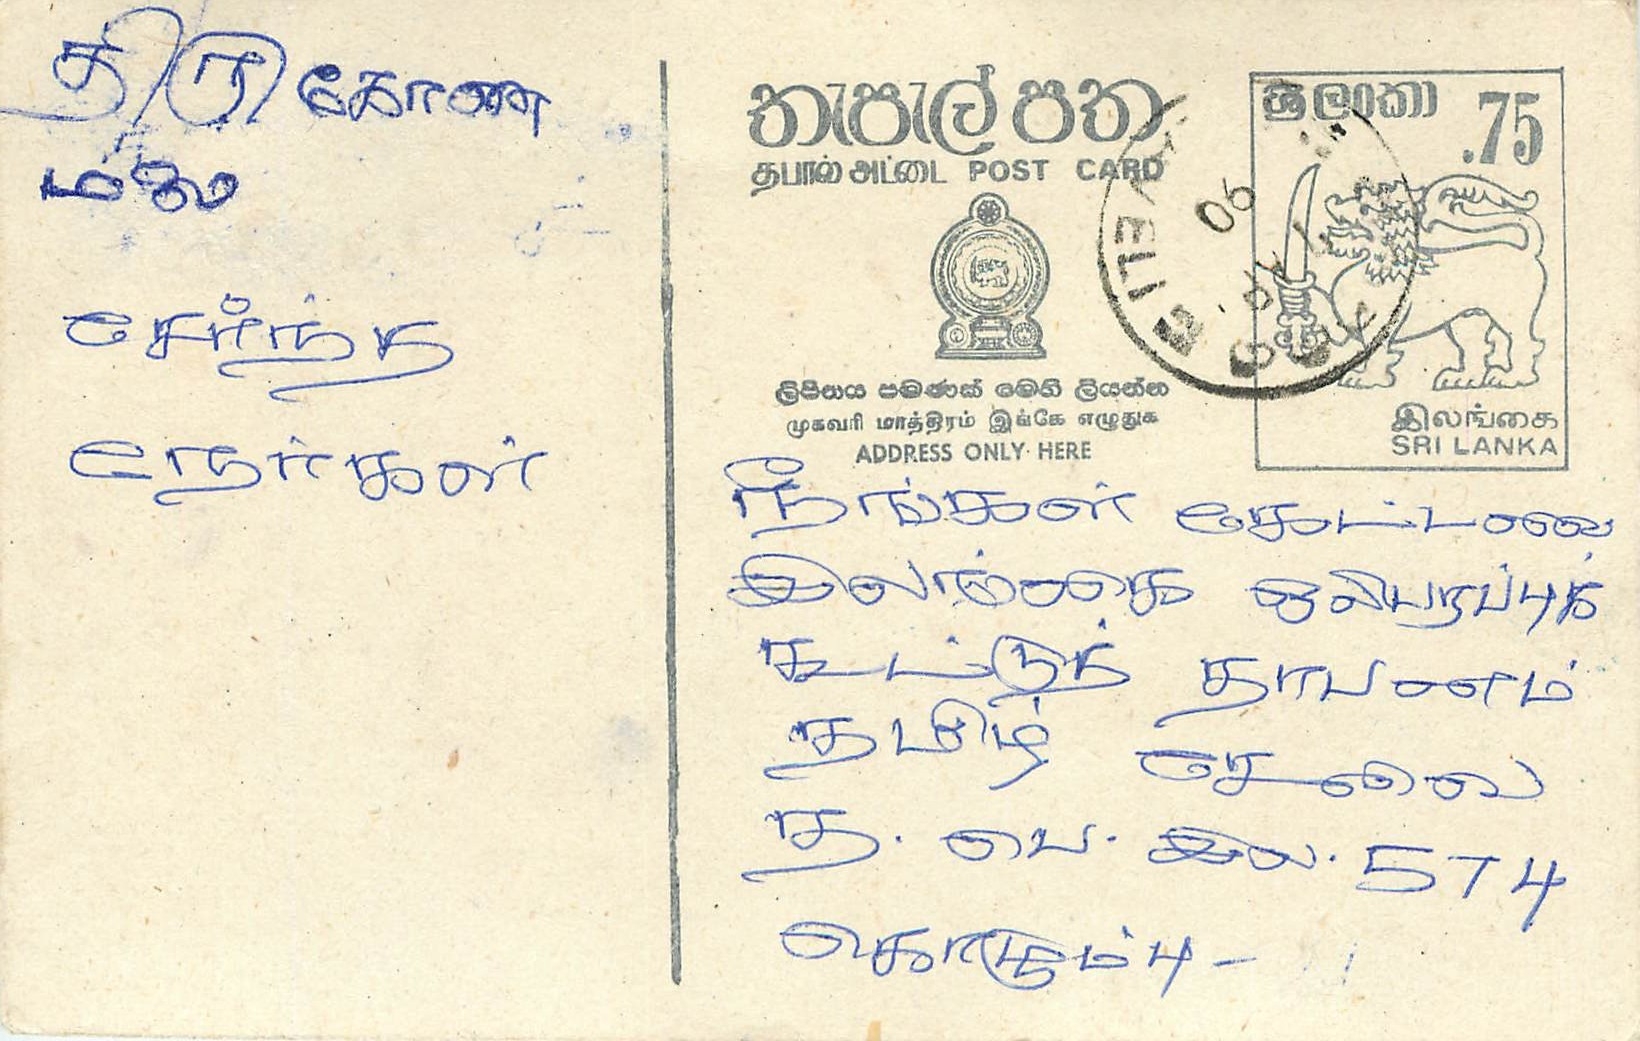 திருகோண
மலை
சேர்ந்த
நேயர்கள்
තැපැල් පත
தபால் அட்டை POST CARD
ලිපිනය පමණක් මෙහි ලියන්න
முகவரி மாத்திரம் இங்கே எழுதுக
ADDRESS ONLY HERE
ශ්‍රී ලංකා .75
இலங்கை
SRI LANKA
90
நீங்கள் கேட்டவை
இலங்கை ஒலிபரப்புக்
கூட்டுத் தாபனம்
தமிழ் சேவை
த. பெ. இல. 574
கொழும்பு -